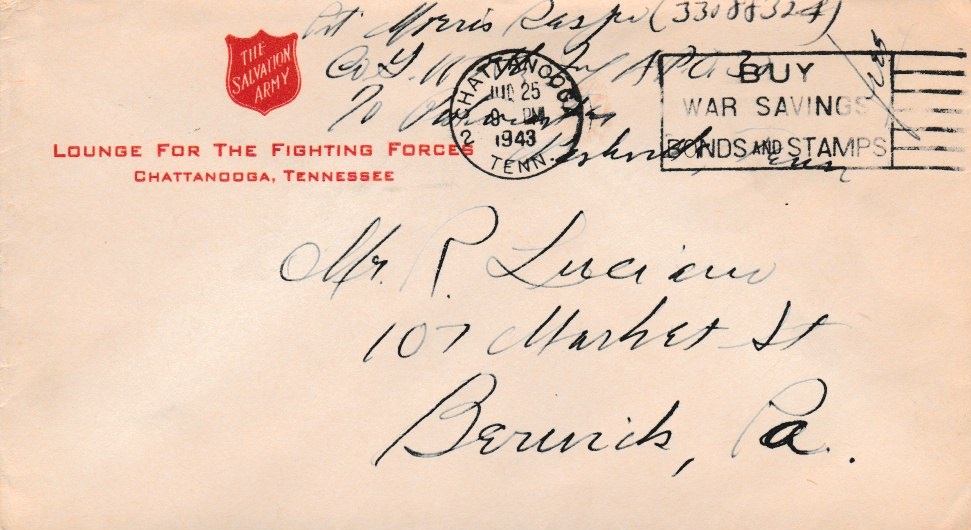 Pvt Morris Raspe (33088324)
Co G.
To Postmaster
Nashville, Tenn
THE
SALVATION
ARMY
LOUNGE FOR THE FIGHTING FORCES
CHATTANOOGA, TENNESSEE
CHATTANOOGA
25
PM
1943
2 TENN.
BUY
WAR SAVINGS
BONDS AND STAMPS
Mr. R. Luciano
107 Market St
Berwick, Pa.